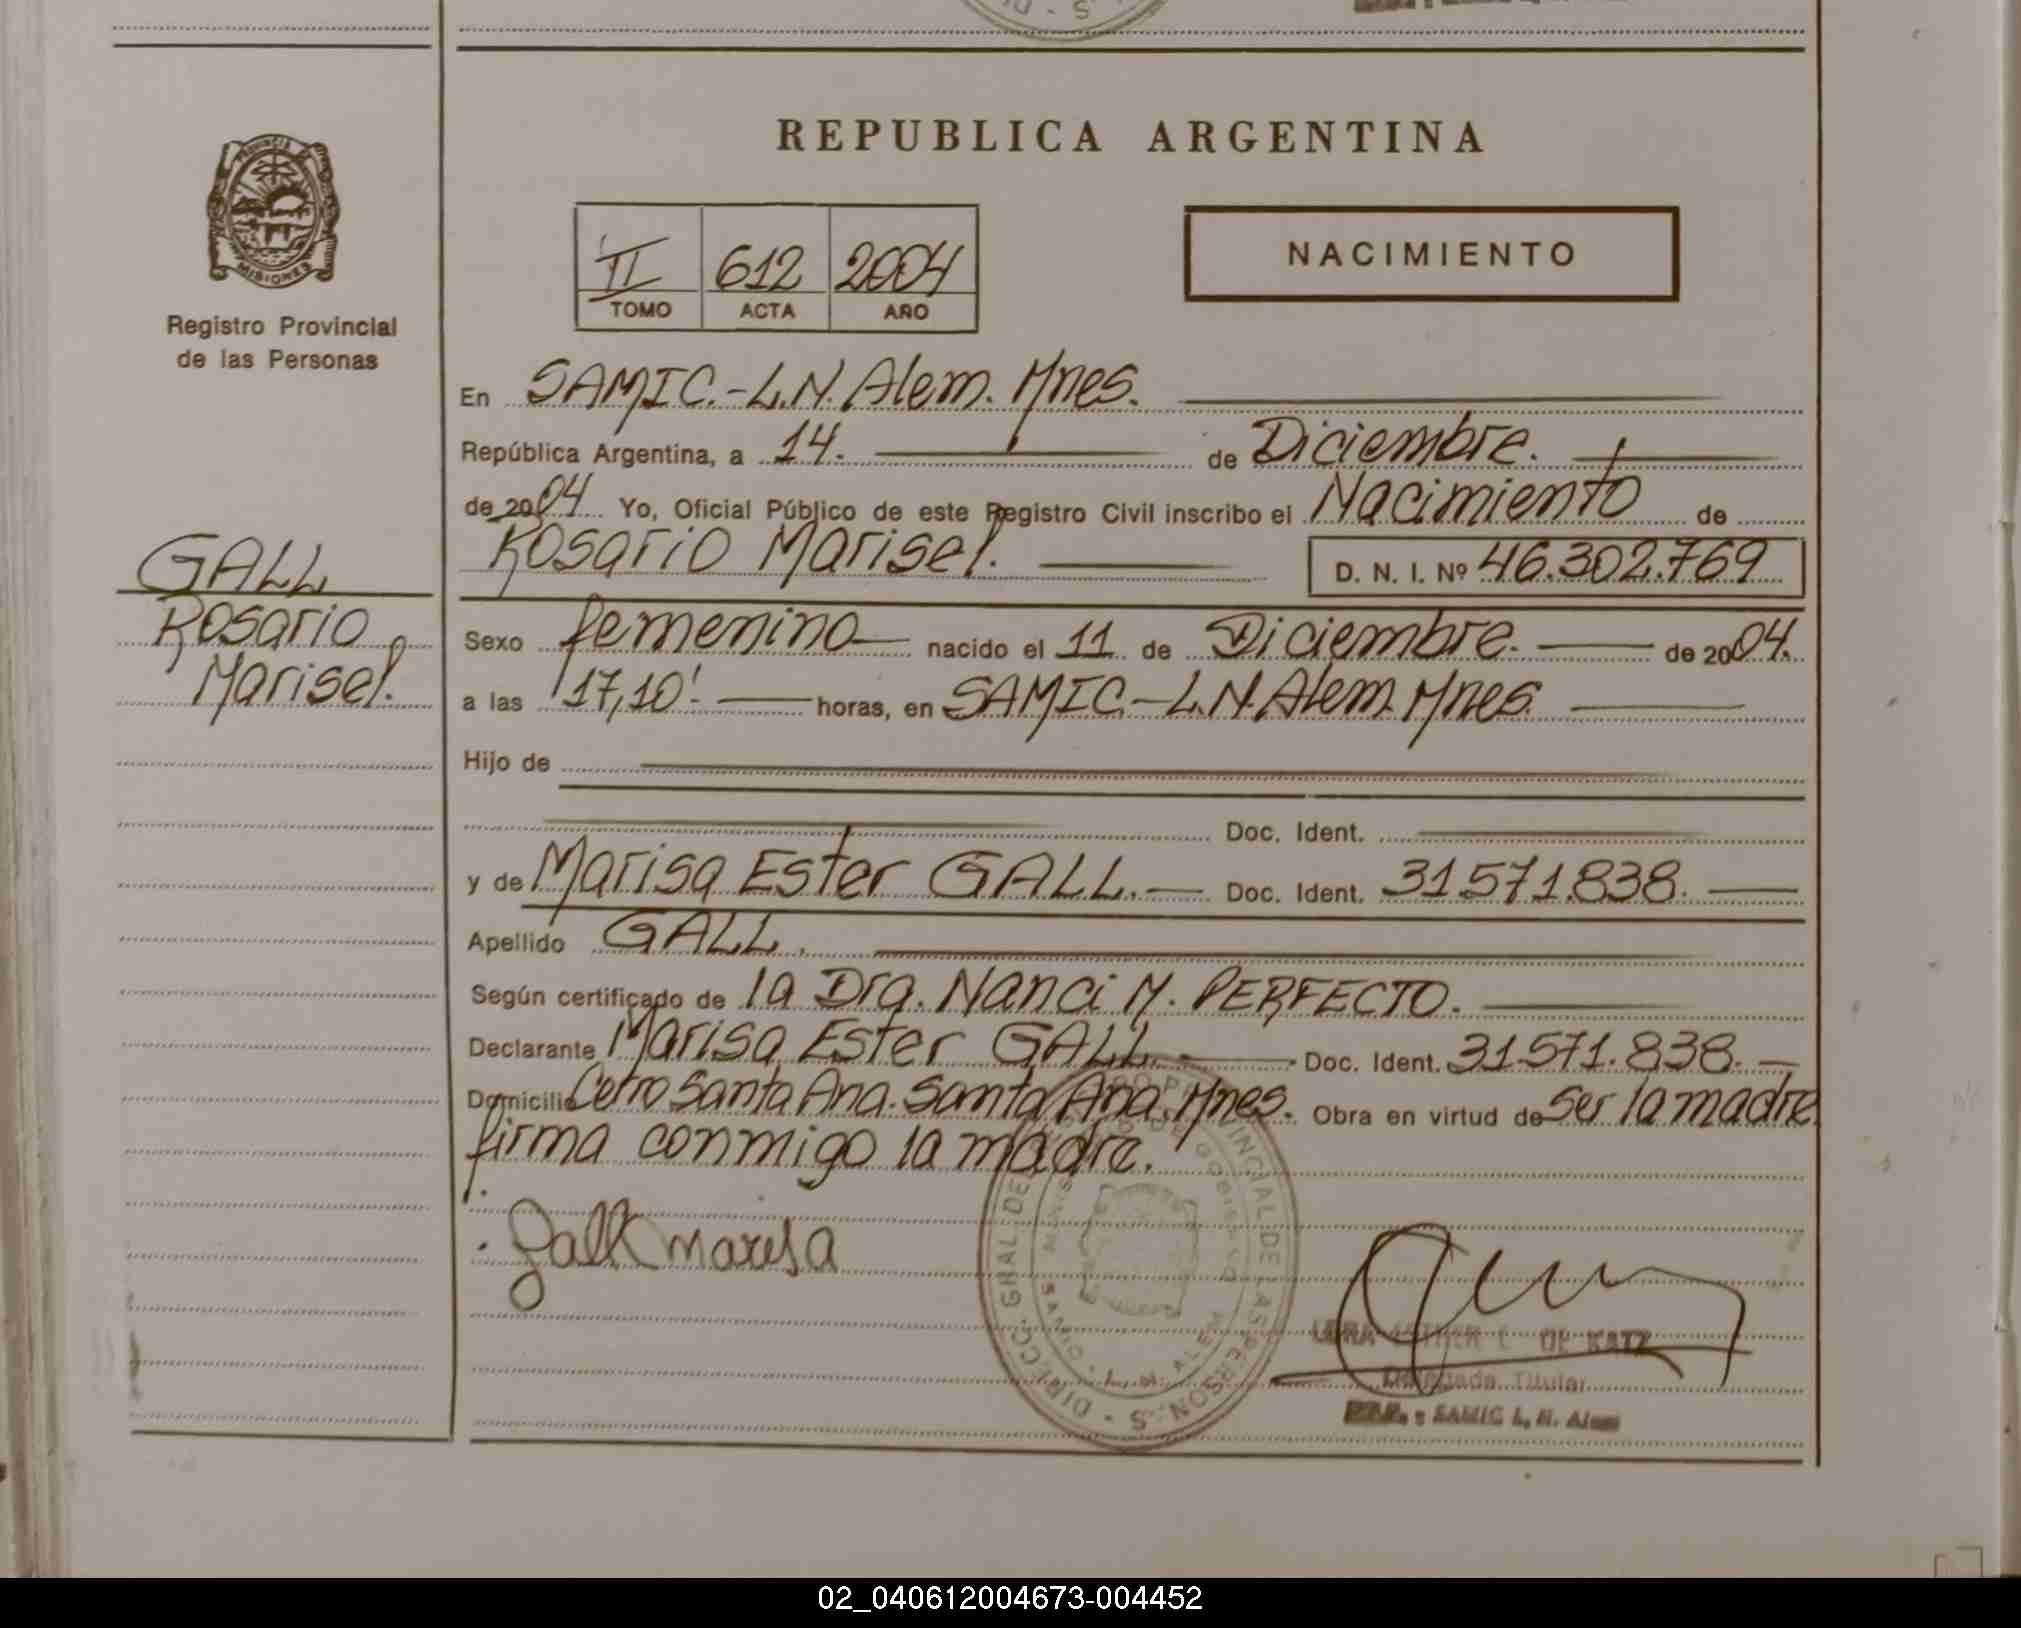 REPUBLICA ARGENTINA
PROVINCIA DE
MISIONES
Registro Provincial
de las Personas
II 612 2004
TOMO ACTA AÑO
NACIMIENTO
En SAMIC.-L.N. Alem. Mnes.
República Argentina, a 14. de Diciembre.
de 2004 Yo, Oficial Público de este Registro Civil inscribo el Nacimiento de
Rosario Marisel. D. N. I. Nº 46.302.769
GALL
Rosario
Marisel.
Sexo femenino nacido el 11 de Diciembre. de 2004.
a las 17,10' horas, en SAMIC-L.N. Alem. Mnes.
Hijo de
Doc. Ident.
y de Marisa Ester GALL. Doc. Ident. 31.571.838.
Apellido GALL.
Según certificado de la Dra. Nanci M. PERFECTO.
Declarante Marisa Ester GALL. Doc. Ident. 31.571.838.
Domicilio Cerro Santa Ana. Santa Ana. Mnes. Obra en virtud de Ser la madre
firma conmigo la madre.
Gall marisa
DE KATZ
Titular
SAMIC L. N. Alem
02_040612004673-004452